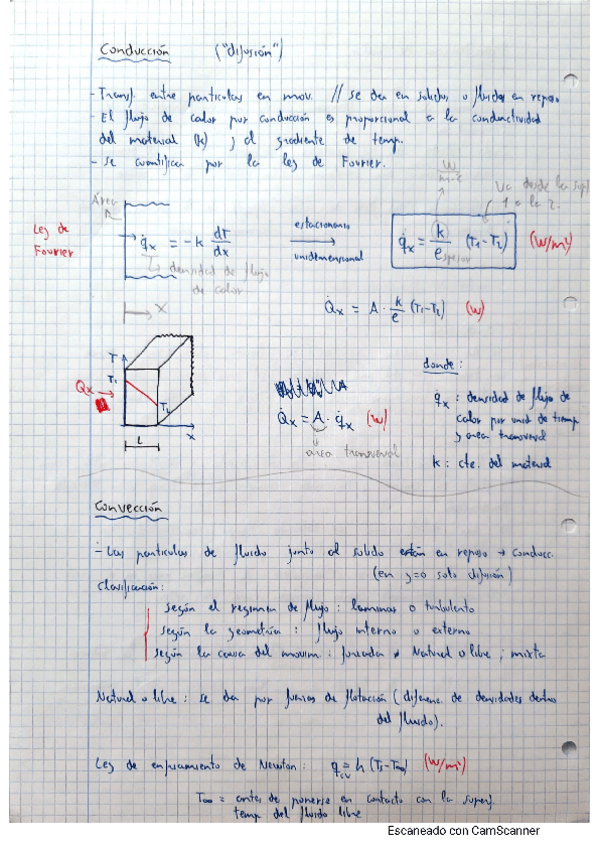 Conducción ("difusión")
- Transf. entre partículas en mov. // se da en solidos, o fluidos en reposo
- El flujo de calor por conducción es proporcional a la conductividad
del material (k) y al gradiente de temp.
- Se cuantifica por la ley de Fourier.
W/m·K
Va desde la sup
1 a la 2.
Área
Ley de Fourier
q̇x = -k dT/dx
estacionario
unidimensional
q̇x = k/espesor (T1-T2) (W/m²)
densidad de flujo
de calor
x
Q̇x = A · k/e (T1-T2) (W)
T
T1
Qx
T2
x
L
Q̇x = A · q̇x (W)
área transversal
donde:
q̇x : densidad de flujo de
calor por unid de tiemp
y area transversal
k : cte. del material
Convección
- Las partículas de fluido junto al solido están en reposo → conducc.
(en y=0 solo difusión)
Clasificación:
según el regimen de flujo : laminar o turbulento
según la geometría : flujo interno o externo
según la causa del movim : forzada Natural o libre ; mixta
Natural o libre : se da por fuerzas de flotación (diferenc. de densidades dentro
del fluido).
Ley de enfriamiento de Newton: qcv = h (Ts-T∞) (W/m²)
T∞ = antes de ponerse en contacto con la superf.
temp del fluido libre
Escaneado con CamScanner